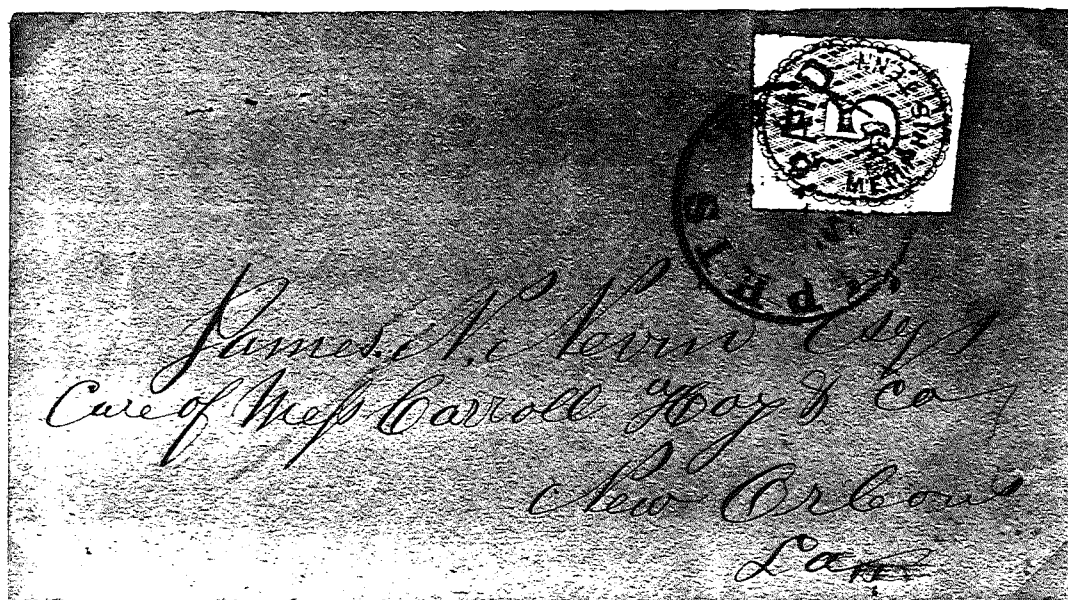 PAID
5
MEMPHIS TENN
James N. Nevin Esqr
Care of Mess Carroll Hoy & Co
New Orleans
La